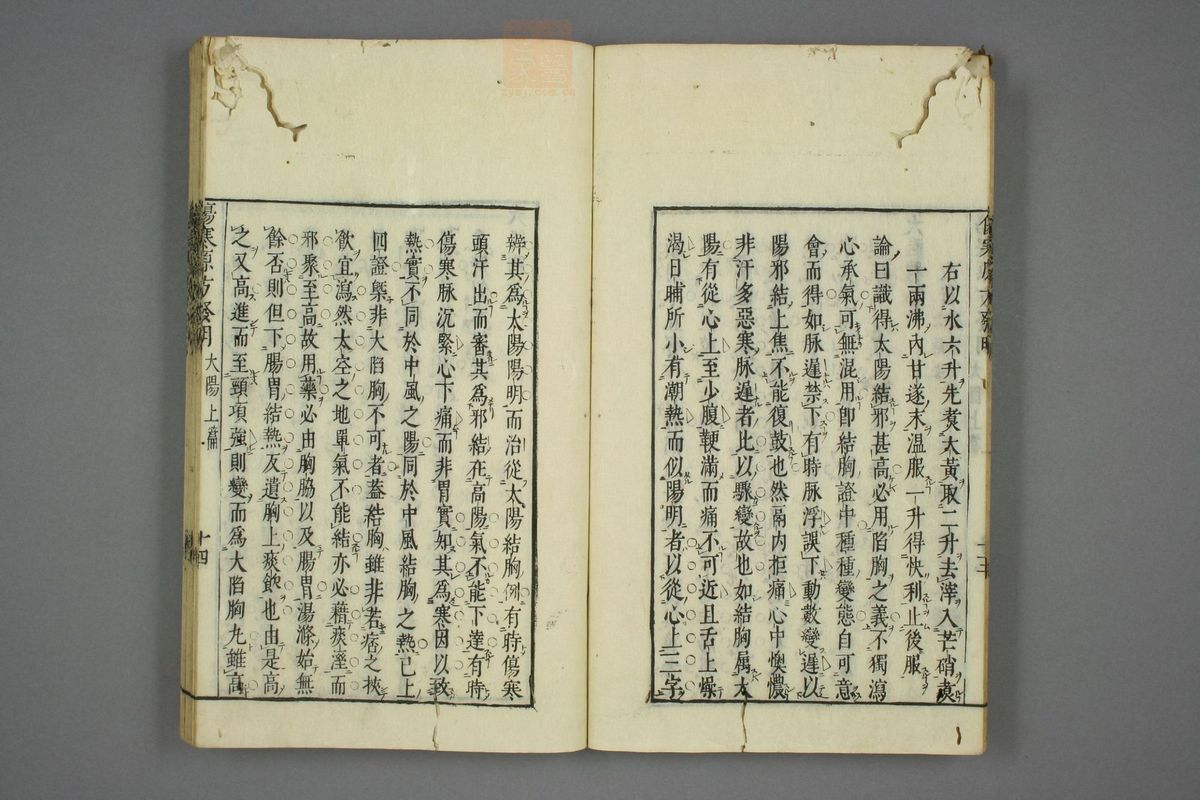 右以水六升先煑大黃取二升去滓入芒硝煑
一兩沸內甘遂末温服一升得快利止後服
論曰識得太陽結邪甚高必用陷胸之義不獨瀉
心承氣可無混用卽結胸證中種種變態自可意
會而得如脉遲禁下有時脉浮誤下動數變遲以
陽邪結上焦不能復鼓也然鬲内拒痛心中懊憹
非汗多惡寒脉遲者比以驟變故也如結胸属太
陽有從心上至少腹鞕滿而痛不可近且舌上燥
渴日晡所小有潮熱而似陽明者以從心上三字
辨其爲太陽陽明而治從太陽結胸例有時傷寒
頭汗出而審其爲邪結在高陽氣不能下達有時
傷寒脉沉緊心下痛而非胃實知其爲寒因以致
熱實不同於中風之陽同於中風結胸之熱已上
四證槩非大陷胸不可者葢結胸雖非若痞之挾
飲宜瀉然太空之地單氣不能結亦必藉痰溼而
邪聚至高故用藥必由胸脇以及腸胃湯滌始無
餘否則但下腸胃結熱反遺胸上痰飲也由是高
之又高進而至頸項強則變而爲大陷胸丸雖高
傷寒源方發明
大陽上篇
十四